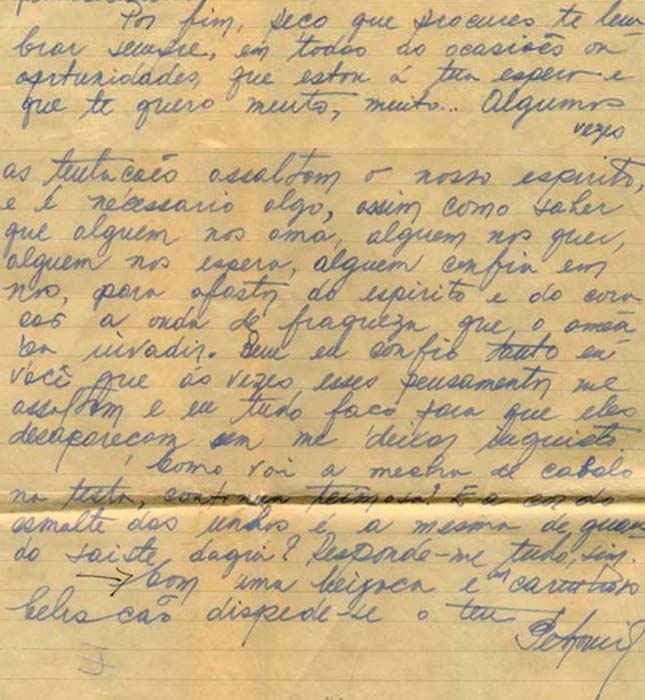 Por fim, peço que procures te lem
brar sempre, em todas as ocasiões ou
oportunidades, que estou á tua espera e
que te quero muito, muito... Algumas
vezes
as tentações assaltam o nosso espirito,
e é necessario algo, assim como saber
que alguem nos ama, alguem nos quer,
alguem nos espera, alguem confia em
nós, para afastar do espirito e do cora
ção a onda de fraqueza que o amea
ça invadir. Bem eu confio tanto em
você que ás vezes esses pensamentos me
assaltam e eu tudo faço para que eles
desapareçam sem me deixar inquieto
Como vai a mecha de cabelo
na testa, continua teimosa? E a cor do
esmalte das unhas é a mesma de quan
do saiste daqui? Responde-me tudo, sim.
Com uma beijoca e um carinhoso
beliscão dispede-se o teu